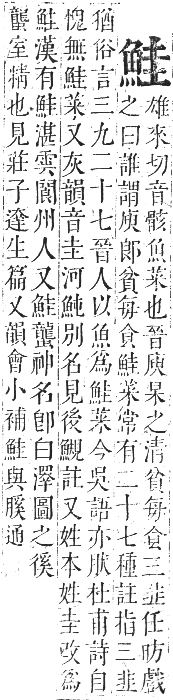 鮭
雄來切音骸魚菜也晉庾杲之清貧每食三韭任昉戲
之曰誰謂庾郎貧每食鮭菜常有二十七種註指三韭
猶俗言三九二十七晉人以魚爲鮭菜今吳語亦肰杜甫詩自
愧無鮭菜又灰韻音圭河魨別名見後鯢註又姓本姓圭改爲
鮭漢有鮭湛雲閬州人又鮭蠪神名卽白澤圖之徯
蠪室精也見莊子達生篇又韻會小補鮭與膎通